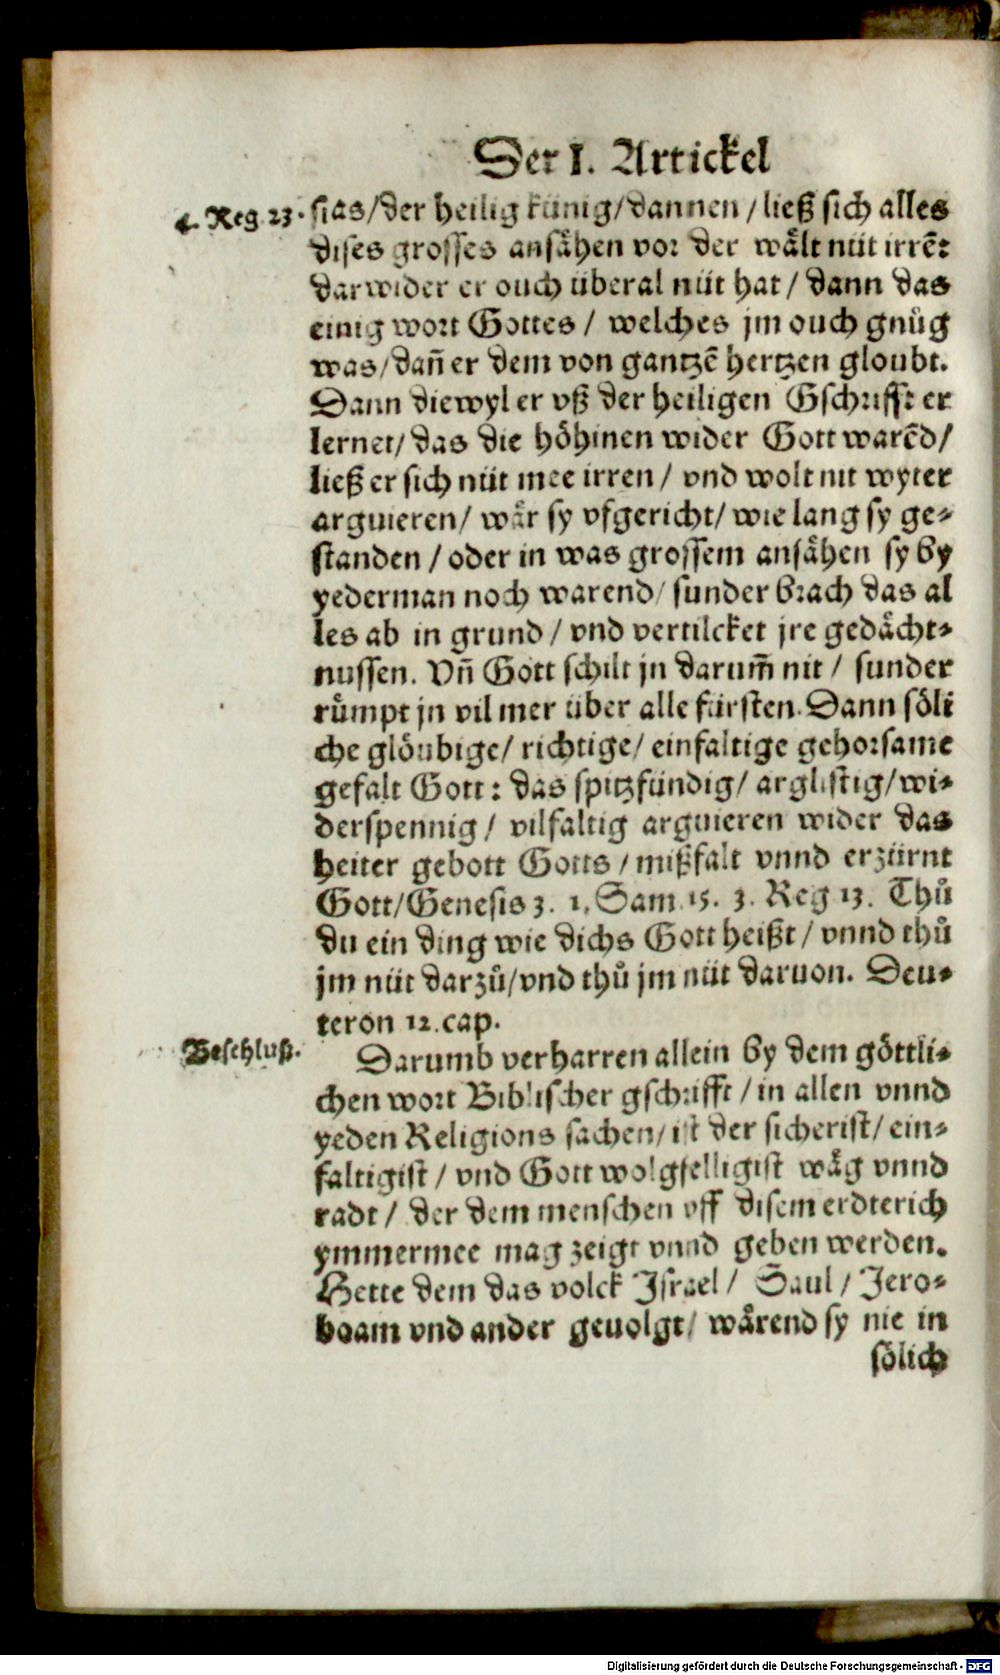 Der I. Artickel
4. Reg. 23.
sias/der heilig künig/dannen/ließ sich alles
dises grosses ansåhen vor der wålt nüt irrē:
darwider er ouch überal nüt hat/ dann das
einig wort Gottes/ welches jm ouch gnůg
was/dañ er dem von gantzē hertzen gloubt.
Dann diewyl er vß der heiligen Gschrifft er
lernet/das die höhinen wider Gott warēd/
ließ er sich nüt mee irren/ vnd wolt nit wyter
arguieren/ wår sy vfgericht/wie lang sy ge-
standen/oder in was grossem ansåhen sy by
yederman noch warend/ sunder brach das al
les ab in grund/ vnd vertilcket jre gedåcht-
nussen. Vñ Gott schilt jn darum̄ nit/ sunder
růmpt jn vil mer über alle fürsten. Dann söli
che glöubige/ richtige/ einfaltige gehorsame
gefalt Gott: das spitzfündig/ arglistig/wi-
derspennig/ vilfaltig arguieren wider das
heiter gebott Gotts/mißfalt vnnd erzürnt
Gott/Genesis 3. 1. Sam. 15. 3. Reg 13. Thů
du ein ding wie dichs Gott heißt/ vnnd thů
jm nüt darzů/vnd thů jm nüt daruon. Deu-
teron 12. cap.
Beschluß.
Darumb verharren allein by dem göttli-
chen wort Biblischer gschrifft/in allen vnnd
yeden Religions sachen/ist der sicherist/ ein-
faltigist/ vnd Gott wolgfelligist wåg vnnd
radt/ der dem menschen vff disem erdterich
ymmermee mag zeigt vnnd geben werden.
Hette dem das volck Israel/ Saul/ Jero-
boam vnd ander geuolgt/ wårend sy nie in
sölich
Digitalisierung gefördert durch die Deutsche Forschungsgemeinschaft - DFG